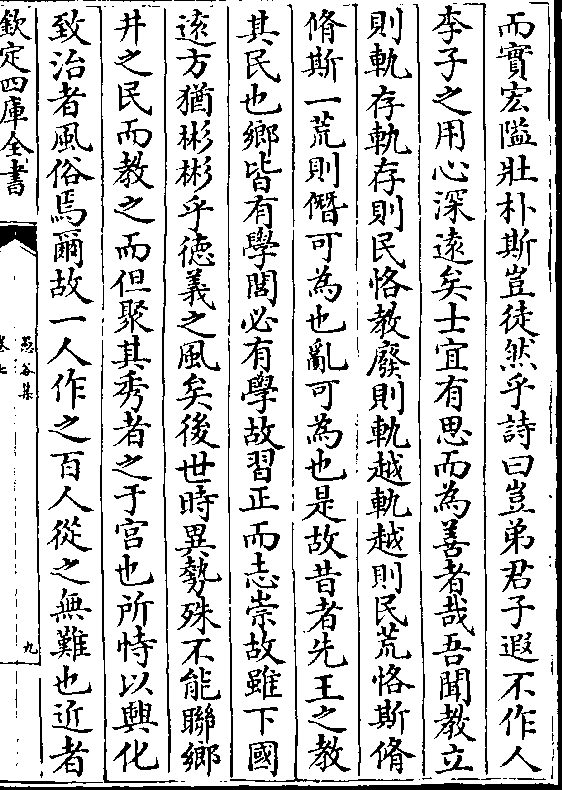 而實宏隘壯朴斯豈徒然乎詩曰豈弟君子遐不作人
李子之用心深遠矣士宜有思而為善者哉吾聞教立
則軌存軌存則民恪教廢則軌越軌越則民荒恪斯脩
脩斯一荒則僭可為也亂可為也是故昔者先王之教
其民也鄉皆有學閭必有學故習正而志崇故雖下國
逺方猶彬彬乎德義之風矣後世時異勢殊不能聯鄉
井之民而教之而但聚其秀者之于宫也所恃以興化
致治者風俗焉爾故一人作之百人從之無難也近者
欽定四庫全書
愚谷集
卷七
九